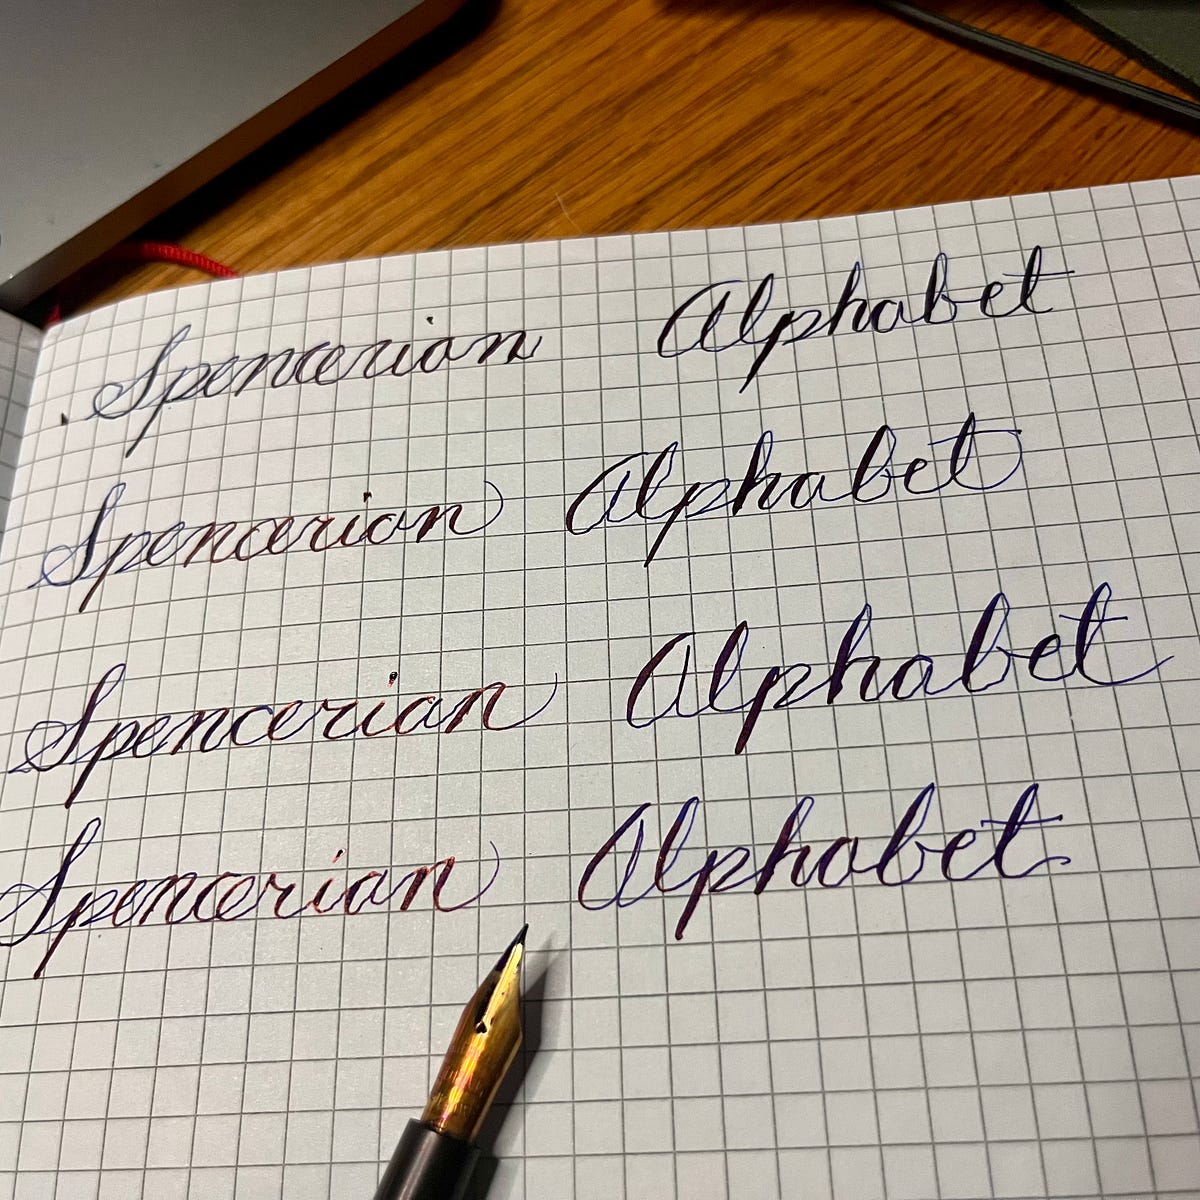 Spencerian Alphabet
Spencerian Alphabet
Spencerian Alphabet
Spencerian Alphabet